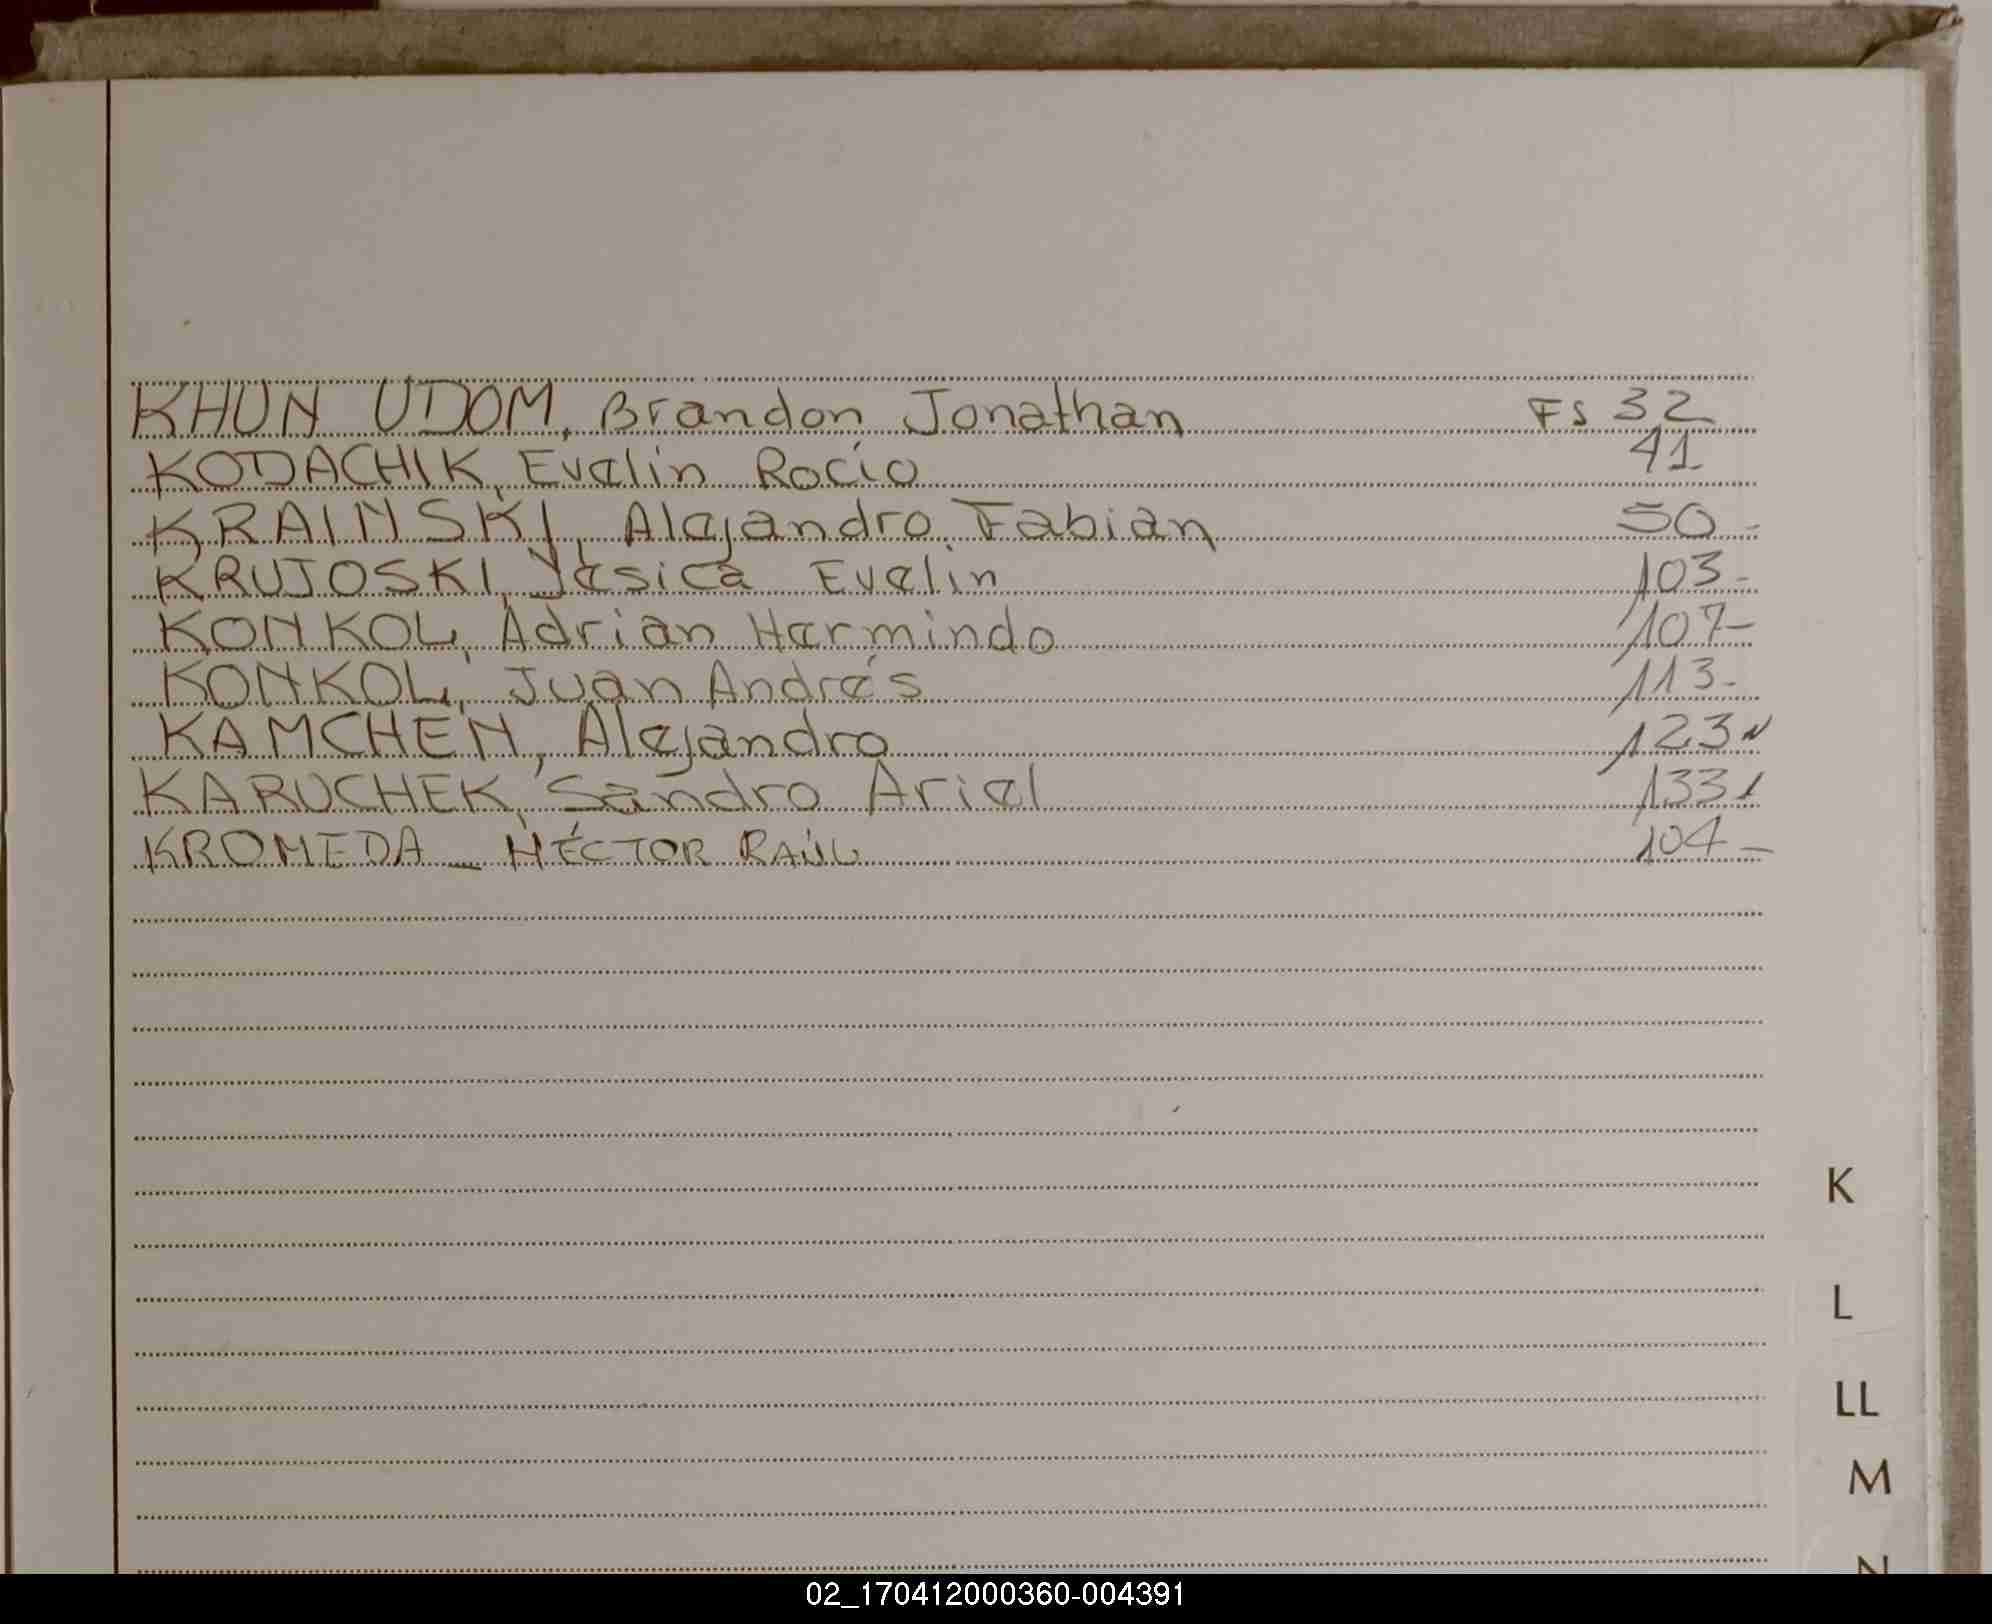 KHUN UDOM, Brandon Jonathan FS 32
KODACHIK, Evelin Rocío 41
KRAINSKI, Alejandro Fabian 50-
KRUJOSKI, Yesica Evelin 103-
KONKOL, Adrian Hermindo 107-
KONKOL, Juan Andrés 113-
KAMCHEN, Alejandro 123
KARUCHEK, Sandro Ariel 133
KROMEDA - HÉCTOR RAÚL 104-
K
L
LL
M
N
02_170412000360-004391